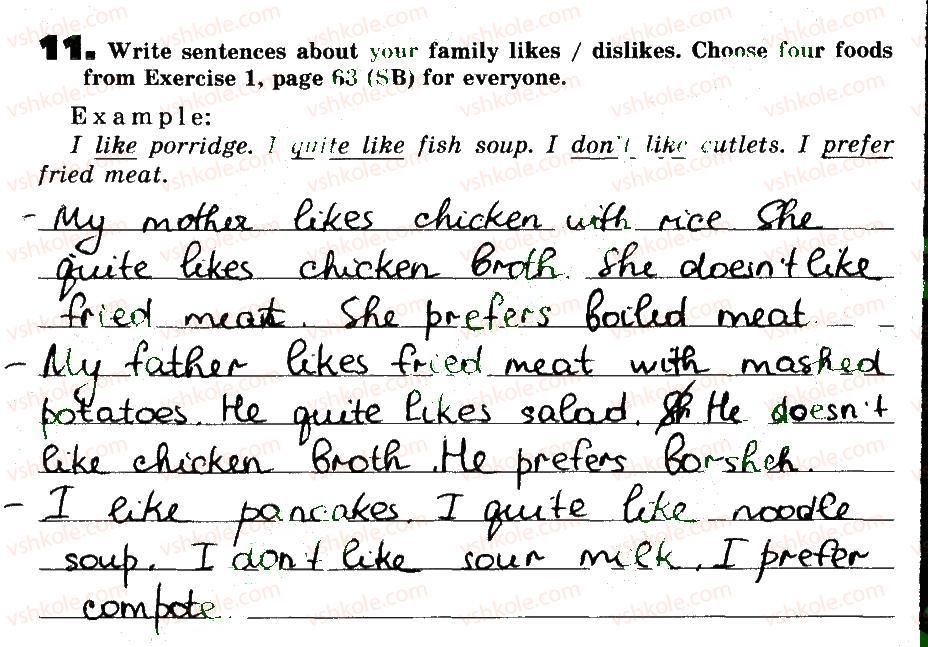 11. Write sentences about your family likes / dislikes. Choose four foods
from Exercise 1, page 63 (SB) for everyone.
Example:
I like porridge. I quite like fish soup. I don't like cutlets. I prefer
fried meat.
- My mother likes chicken with rice She
quite likes chicken broth. She doesn't like
fried meat. She prefers boiled meat.
- My father likes fried meat with mashed
potatoes. He quite likes salad. He doesn't
like chicken broth. He prefers borshch.
- I like pancakes. I quite like noodle
soup. I don't like sour milk. I prefer
compote.